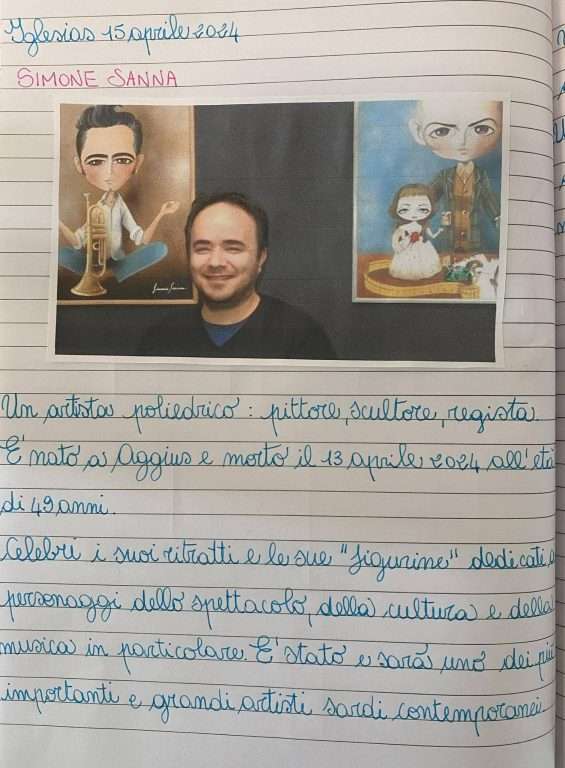 Iglesias 15 aprile 2024
SIMONE SANNA
Simone Sanna
Un artista poliedrico: pittore, scultore, regista.
E' nato a Aggius e morto il 13 aprile 2024 all'età
di 49 anni.
Celebri i suoi ritratti e le sue "figurine" dedicate a
personaggi dello spettacolo, della cultura e della
musica in particolare. E' stato e sarà uno dei più
importanti e grandi artisti sardi contemporanei.